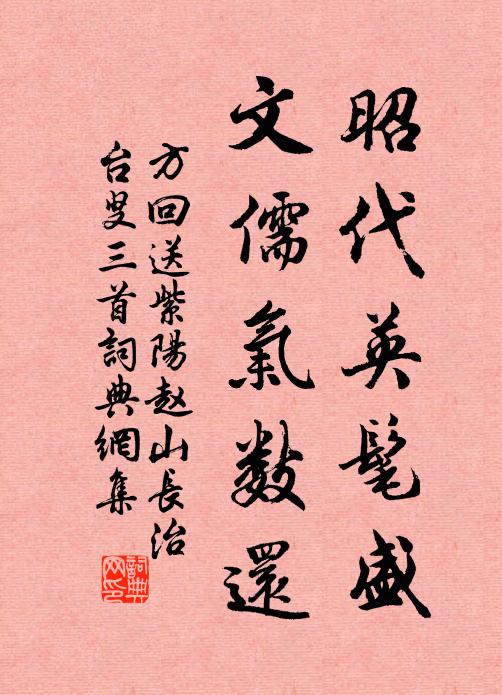 昭代英髦盛
文儒氣數還
方回送紫陽赵山長治
台叟三首詞典網集
詞典
网印